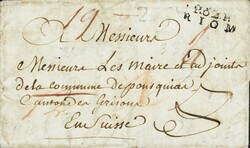 12
P.62.P.
RIOM
Messieurs
Messieurs Les Maire et adjoints
de la commune de pousquias
cantone des Grisons
En Suisse